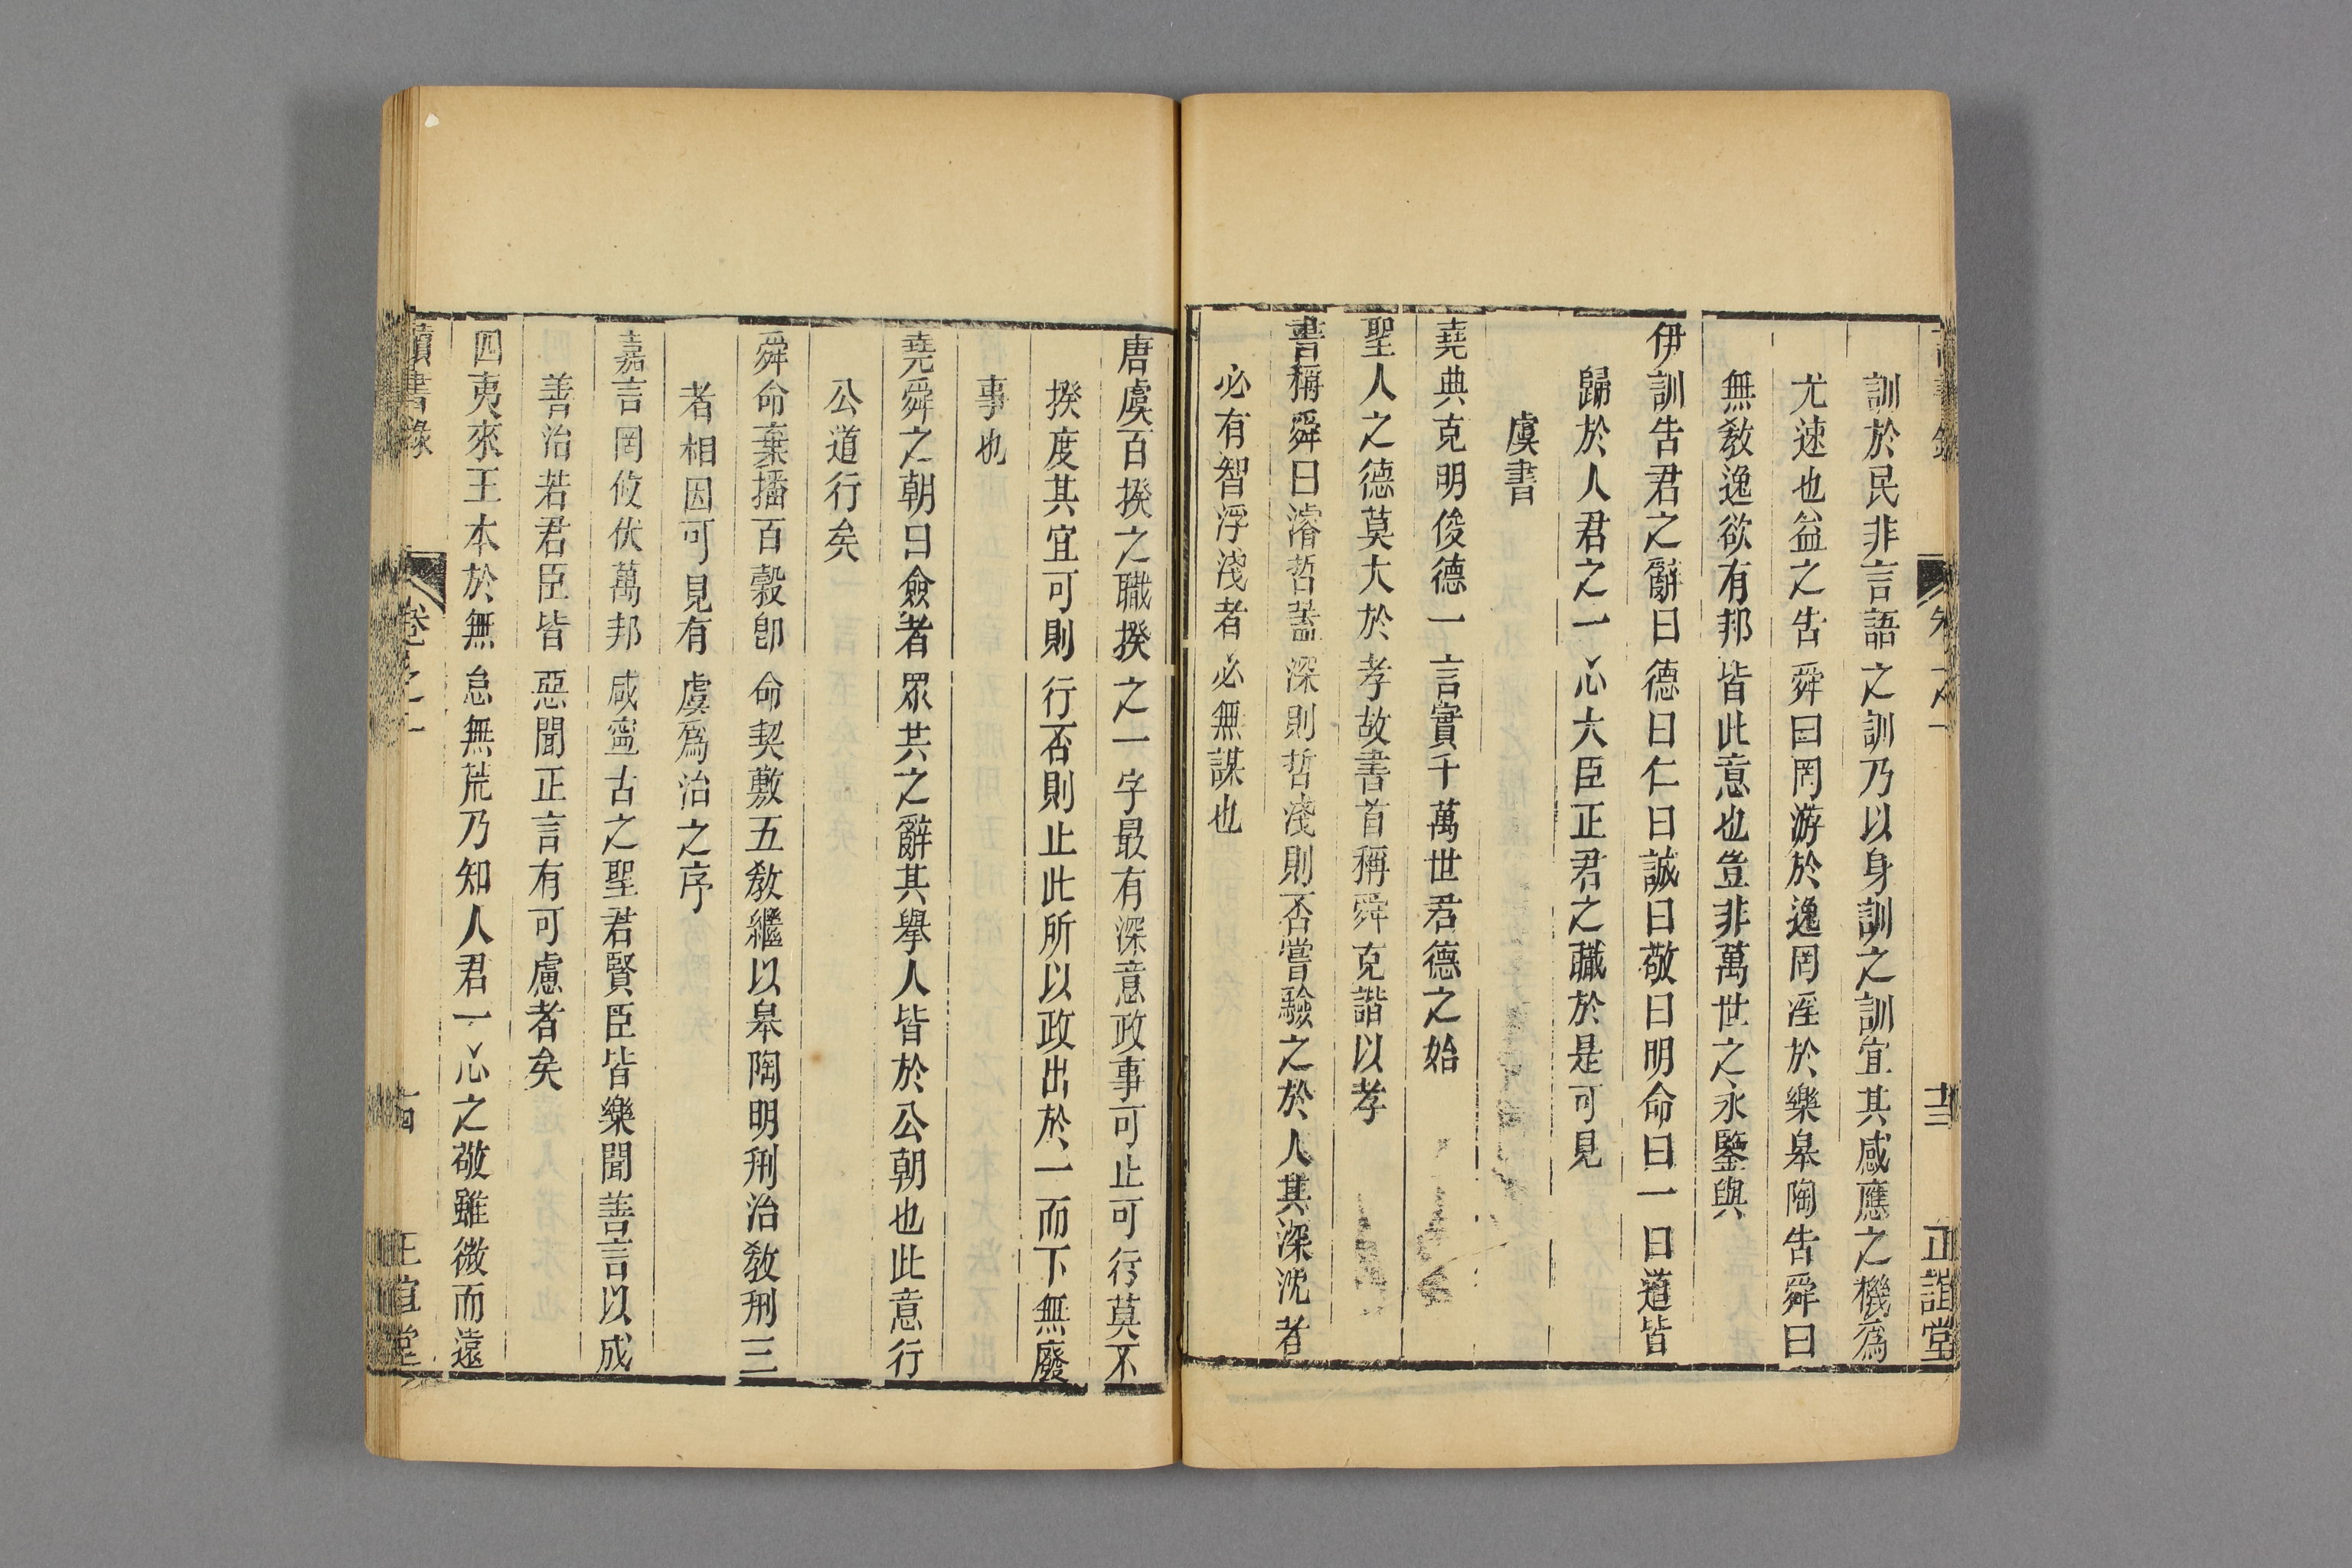 訓於民非言語之訓乃以身訓之訓宜其感應之機爲
尤速也益之告舜曰罔游於逸罔淫於樂皋陶告舜曰
無敎逸欲有邦皆此意也豈非萬世之永鑒與
伊訓告君之辭曰德曰仁曰誠曰敬曰明命曰一曰道皆
歸於人君之一心大臣正君之職於是可見
虞書
堯典克明俊德一言實千萬世君德之始
聖人之德莫大於孝故書首稱舜克諧以孝
書稱舜曰濬哲蓋深則哲淺則否嘗驗之於人其深沈者
必有智浮淺者必無謀也
正誼堂
唐虞百揆之職揆之一字最有深意政事可止可行莫不
揆度其宜可則行否則止此所以政出於一而下無廢
事也
堯舜之朝曰僉者眾共之辭其舉人皆於公朝也此意行
公道行矣
舜命棄播百穀卽命契敷五敎繼以皋陶明刑治敎刑三
者相因可見有虞爲治之序
嘉言罔攸伏萬邦咸寧古之聖君賢臣皆樂聞善言以成
善治若君臣皆惡聞正言有可慮者矣
四夷來王本於無怠無荒乃知人君一心之敬雖微而遠
讀書錄 卷之一 十四 正誼堂